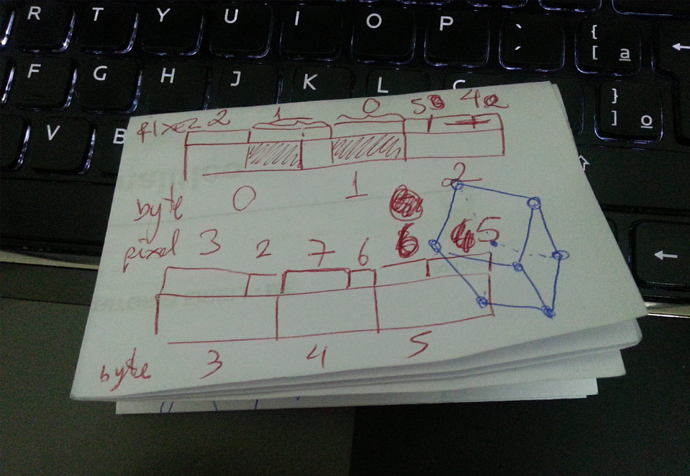 R T Y U I O P ` ´ { [ a
F G H J K L C } ] o
V B
pixel 2 1 0 5 4
byte 0 1 2
pixel 3 2 7 6 6 5
byte 3 4 5